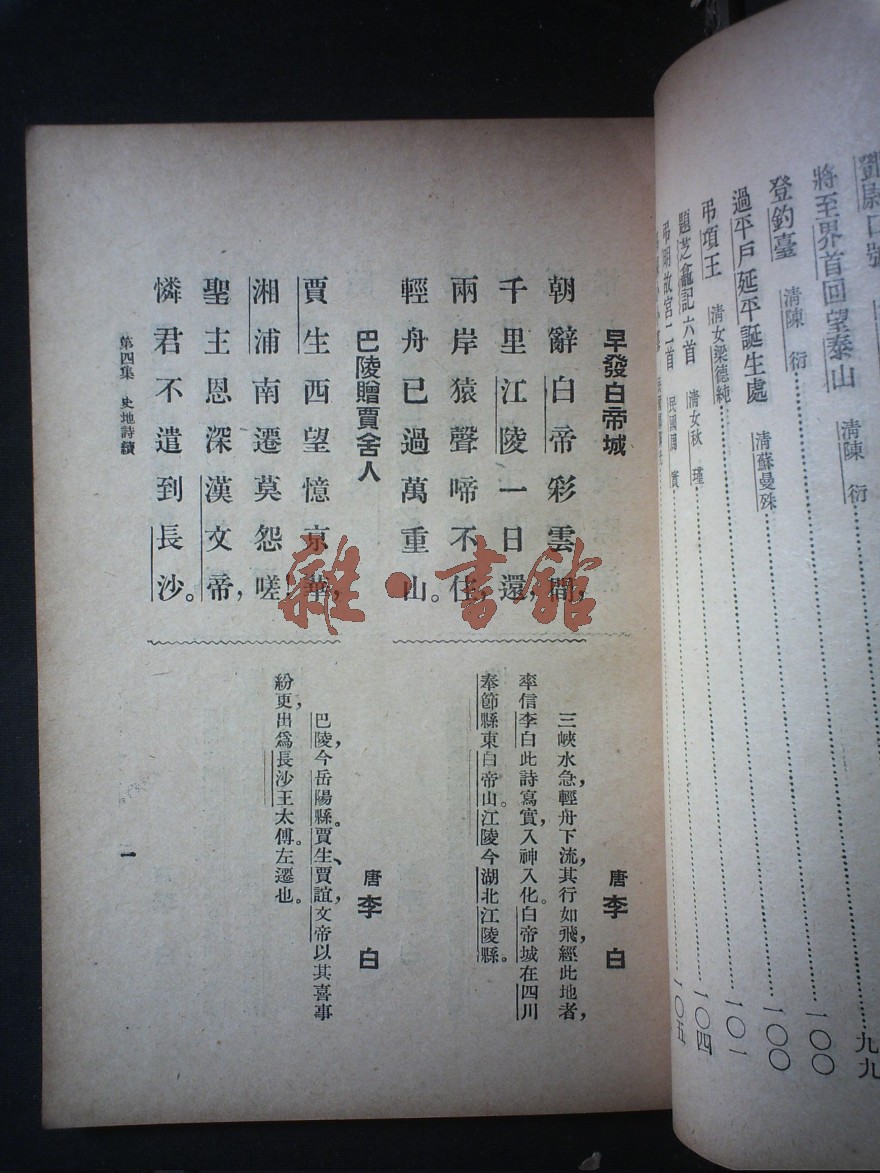 將至界首回望泰山 清陳 衍……九九
登釣臺 清陳 衍……一〇〇
過平戶延平誕生處 清蘇曼殊……一〇〇
弔項王 清女梁德純……一〇一
題芝龕記六首 清女秋 瑾……一〇四
弔明故宮二首 民國周 實……一〇五
早發白帝城 唐 李 白
朝辭白帝彩雲間,
千里江陵一日還,
兩岸猿聲啼不住,
輕舟已過萬重山。
三峽水急,輕舟下流,其行如飛,經此地者,
率信李白此詩寫實,入神入化。白帝城在四川
奉節縣東白帝山。江陵今湖北江陵縣。
巴陵贈賈舍人 唐 李 白
賈生西望憶京華,
湘浦南遷莫怨嗟!
聖主恩深漢文帝,
憐君不遣到長沙。
巴陵,今岳陽縣。賈生、賈誼,文帝以其喜事
紛更,出爲長沙王太傅。左遷也。
第四集 史地詩續 一
雜·書館